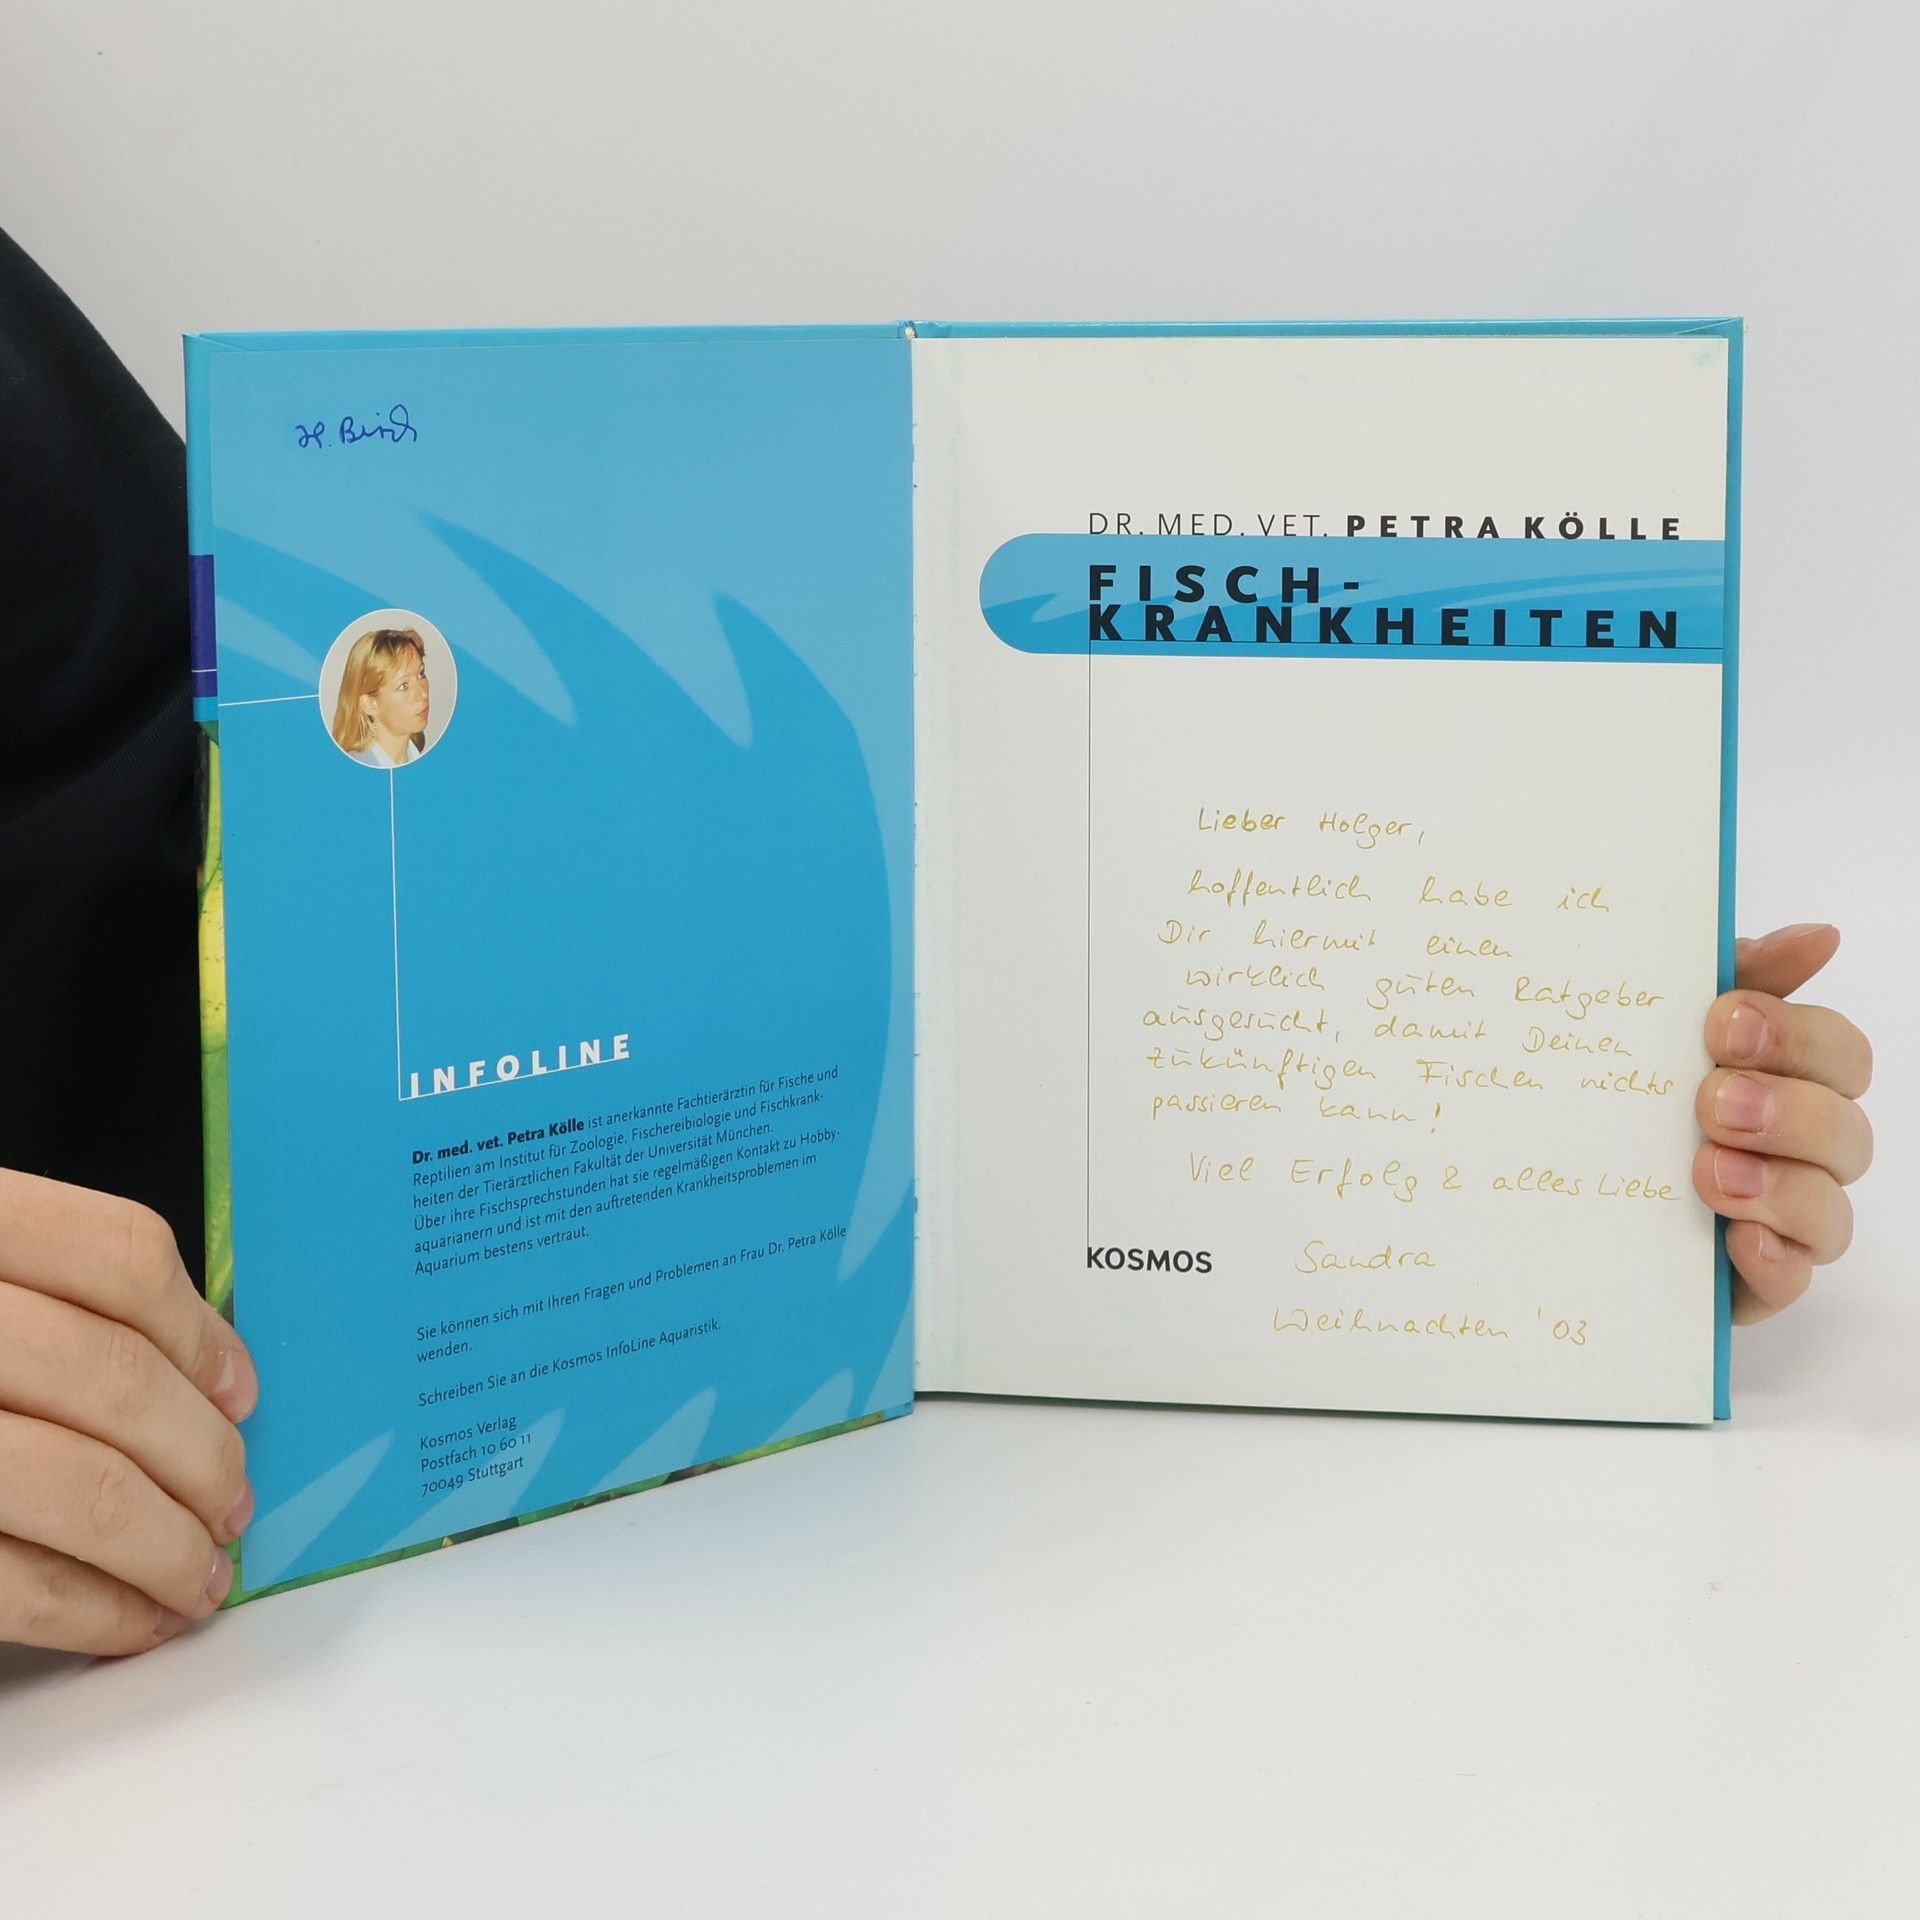 H. Birch
INFOLINE
Dr. med. vet. Petra Kölle ist anerkannte Fachtierärztin für Fische und
Reptilien am Institut für Zoologie, Fischereibiologie und Fischkrank-
heiten der Tierärztlichen Fakultät der Universität München.
Über ihre Fischsprechstunden hat sie regelmäßigen Kontakt zu Hobby-
aquarianern und ist mit den auftretenden Krankheitsproblemen im
Aquarium bestens vertraut.
Sie können sich mit Ihren Fragen und Problemen an Frau Dr. Petra Kölle
wenden.
Schreiben Sie an die Kosmos InfoLine Aquaristik.
Kosmos Verlag
Postfach 10 60 11
70049 Stuttgart
DR. MED. VET. PETRA KÖLLE
FISCH-
KRANKHEITEN
Lieber Holger,
hoffentlich habe ich
Dir hiermit einen
wirklich guten Ratgeber
ausgesucht, damit Deinen
zukünftigen Fischen nichts
passieren kann!
Viel Erfolg & alles Liebe
Sandra
Weihnachten '03
KOSMOS